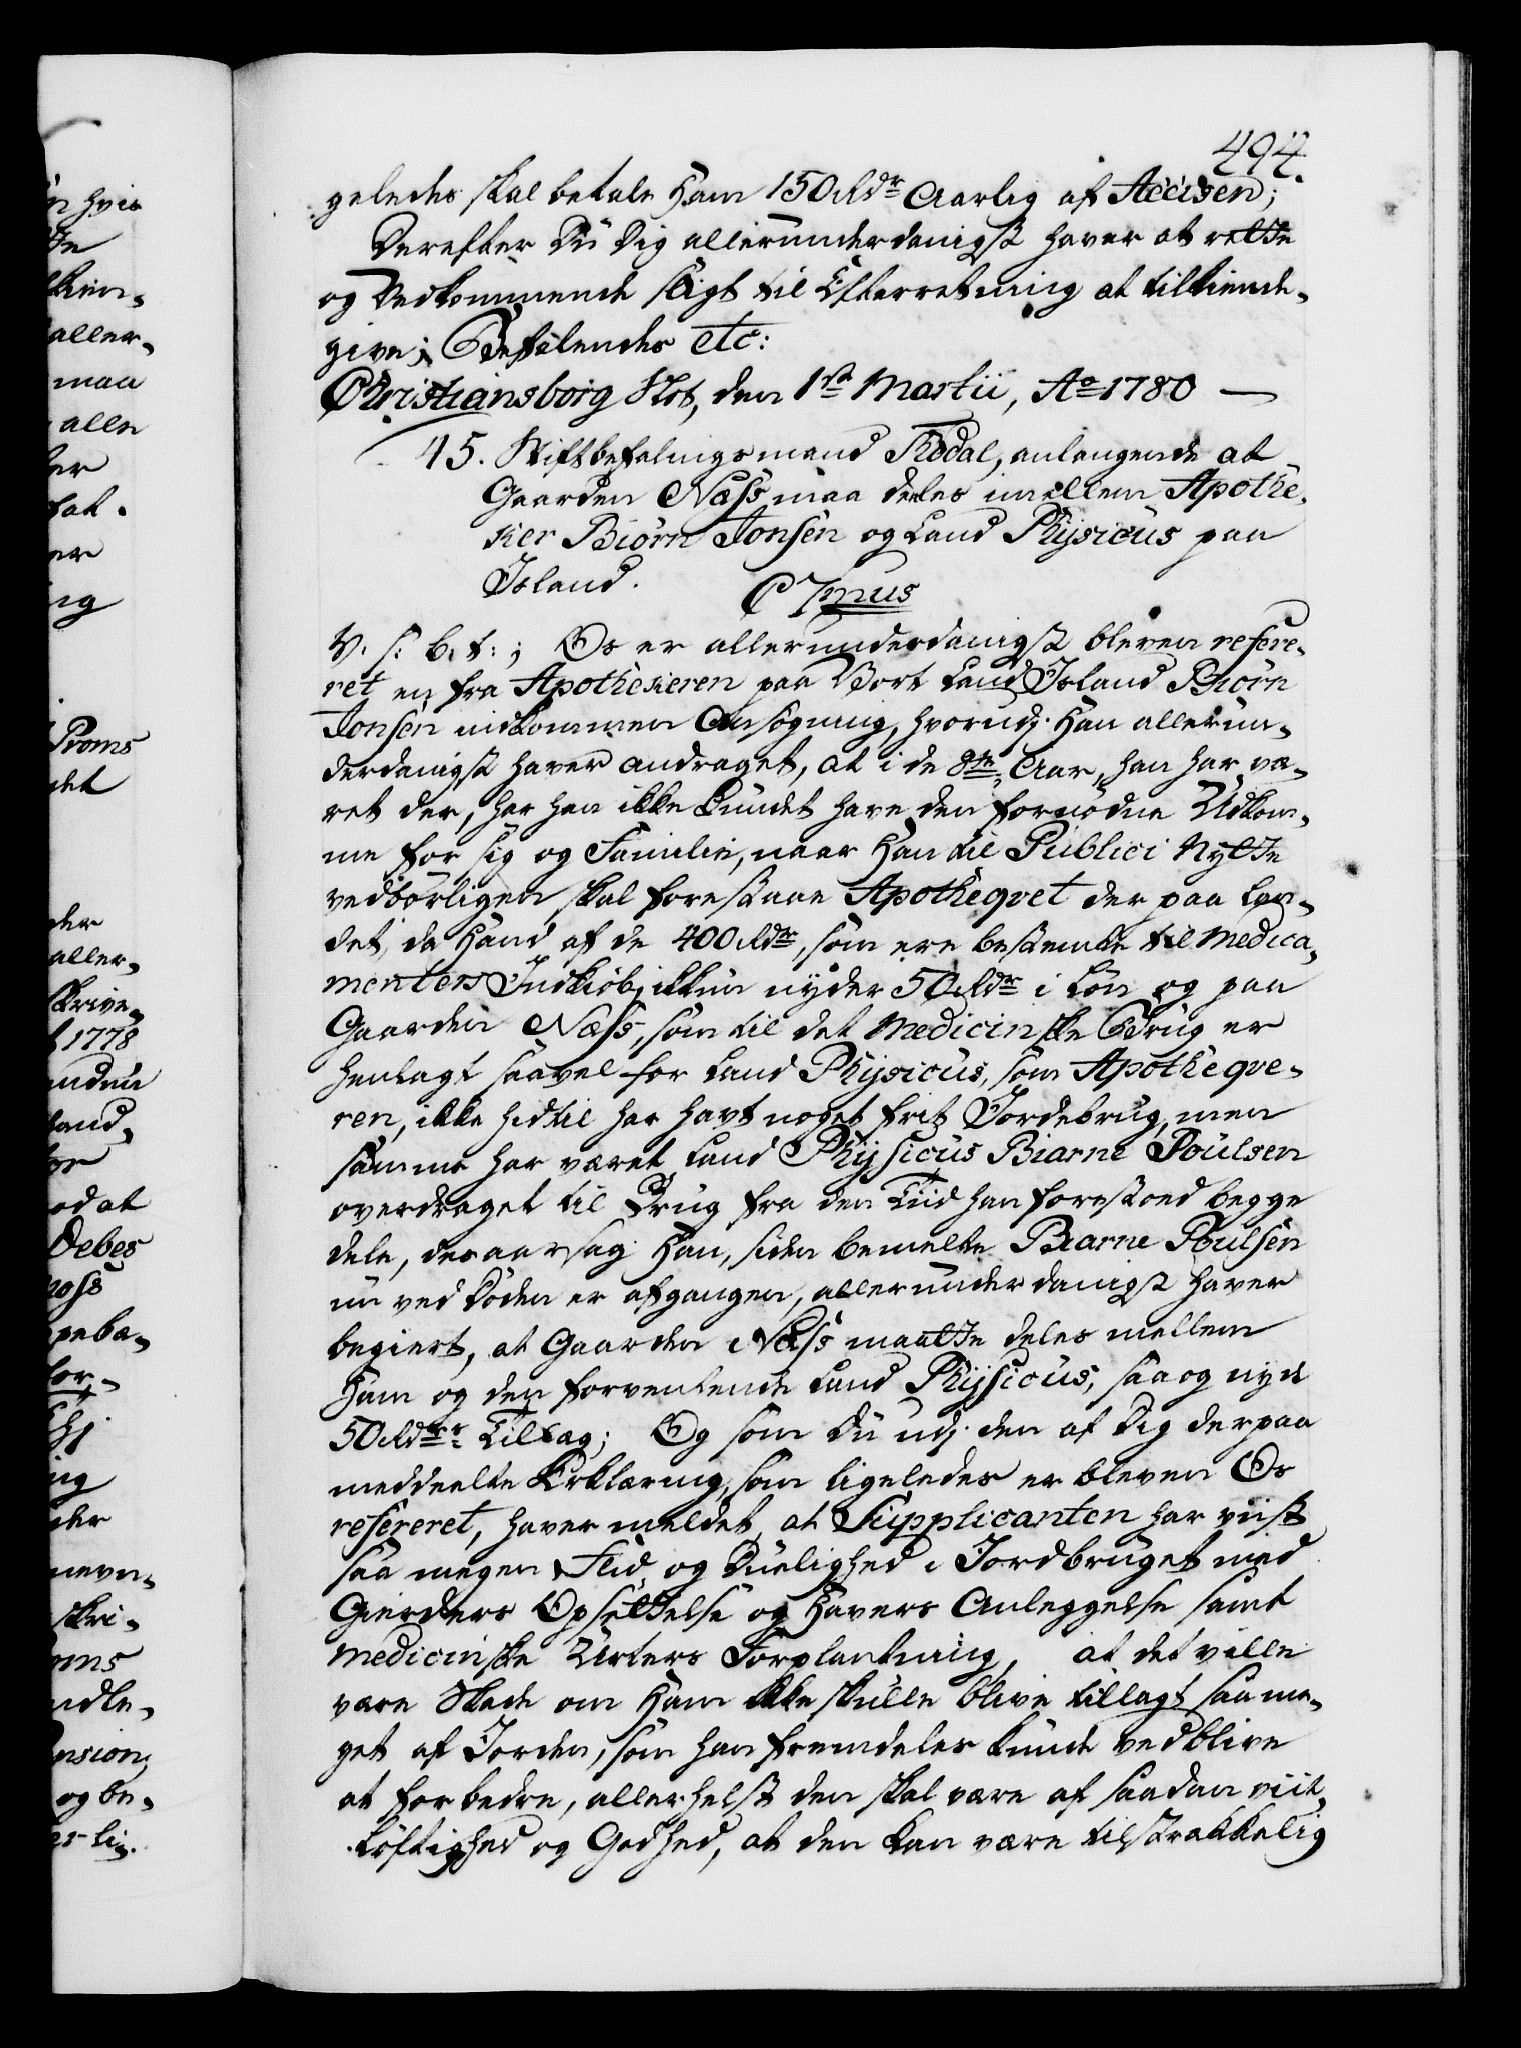 494.
geledes skal betale Ham 150 Rdr Aarlig af Accisen;
Derefter Du Dig allerunderdanigst haver at rette
og Vedkommende sligt til Efterretning at tilkiende-
give; Befalendes etc:
Christiansborg Slot, den 1ste Martii, Ao 1780 —
45. Stiftbefalingsmand Thodal, anlangende at
Gaarden Næss maa deeles imellem Apothe-
ker Biørn Jonsen og Land Physicus paa
Island.
C 7mus
V. s: b. t: ; Os er allerunderdanigst bleven refere-
ret en fra Apothekeren paa Vort Land Island Biørn
Jonsen indkommen Ansøgning, hvorudj Han allerun-
derdanigst haver andraget, at i de 8te Aar, han har væ-
ret der, har han ikke kundet have den fornødne Udkom-
me for sig og Familie, naar Han til Publici Nytte
vedbørligen skal forestaae Apotheqvet der paa Lan-
det, da Hand af de 400 Rdr, som ere bestemte til Medica-
menters Indkiøb, ikkun nyder 50 Rdr i Løn og paa
Gaarden Næss, som til det Medicinske Brug er
henlagt saavel for Land Physicus, som Apotheqve-
ren, ikke hidtil har havt noget frit Jordebrug, men
samme har været Land Physicus Biarne Poulsen
overdraget til Brug fra den Tiid han forestoed begge
dele, desaarsag Han, siden bemelte Biarne Poulsen
nu ved Døden er afgangen, allerunderdanigst haver
begiert, at Gaarden Næss maatte deles mellem
Ham og den forventende Land Physicus, saa og nyde
50 Rdrs Tillag; Og som Du udj den af Dig derpaa
meddeelte Erklæring, som ligeledes er bleven Os
refereret, haver meldet, at Supplicanten har viist
saa megen Flid og Duelighed i Jordbruget med
Gierders Opsettelse og Havers Anleggelse samt
medicinske Urters Forplantning, at det ville
være Skade om Ham ikke skulle blive tillagt saa me-
get af Jorden, som han fremdeles kunde vedblive
at forbedre, allerhelst den skal være af saadan viit-
løftighed og Godhed, at den kan være tilstrækkelig